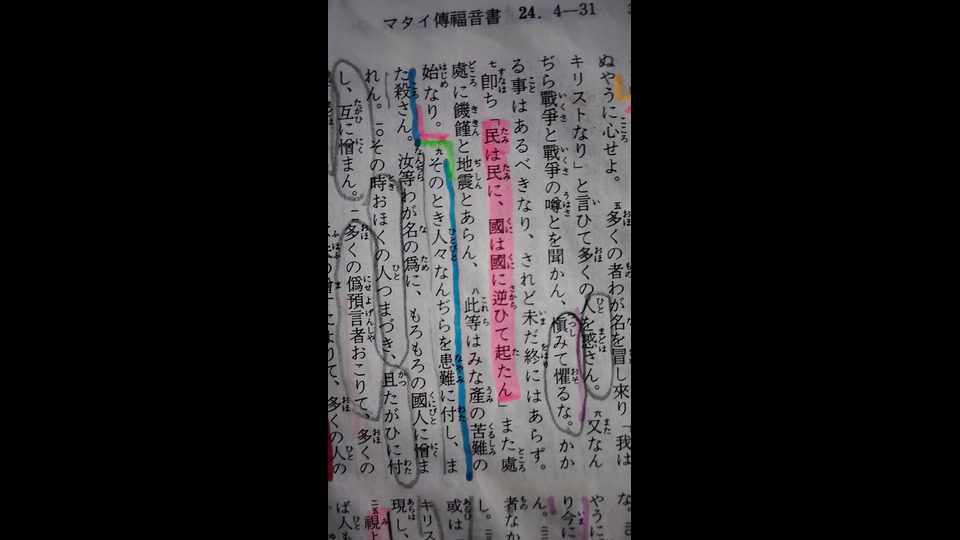 マタイ傳福音書 24. 4—31
ぬやうに心せよ。五多くの者わが名を冒し來り『我は
キリストなり』と言ひて多くの人を惑さん。六又なん
ぢら戰爭と戰爭の噂とを聞かん、愼みて懼るな。かか
る事はあるべきなり、されど未だ終にはあらず。
七即ち「民は民に、國は國に逆ひて起たん」また處
處に饑饉と地震とあらん、八此等はみな產の苦難の
始なり。九そのとき人々なんぢらを患難に付し、ま
た殺さん。汝等わが名の爲に、もろもろの國人に憎ま
れん。一〇その時おほくの人つまづき、且たがひに付
し、互に憎まん。一一多くの僞預言者おこりて、多くの
によりて、多くの人の
な。
やうに
り今に
ん。
者なか
し。
或は
キリス
現し、
二五視よ
ば人も